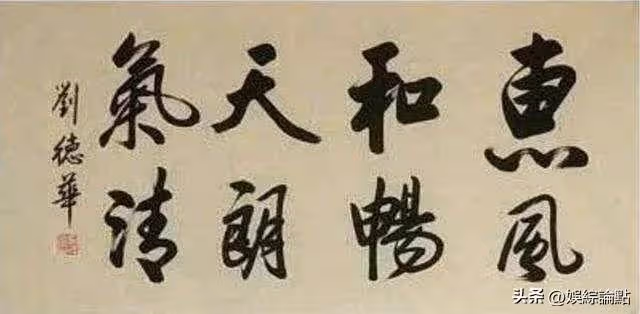 惠風
和暢
天朗
氣清
劉德華
头条 @娱綜論點